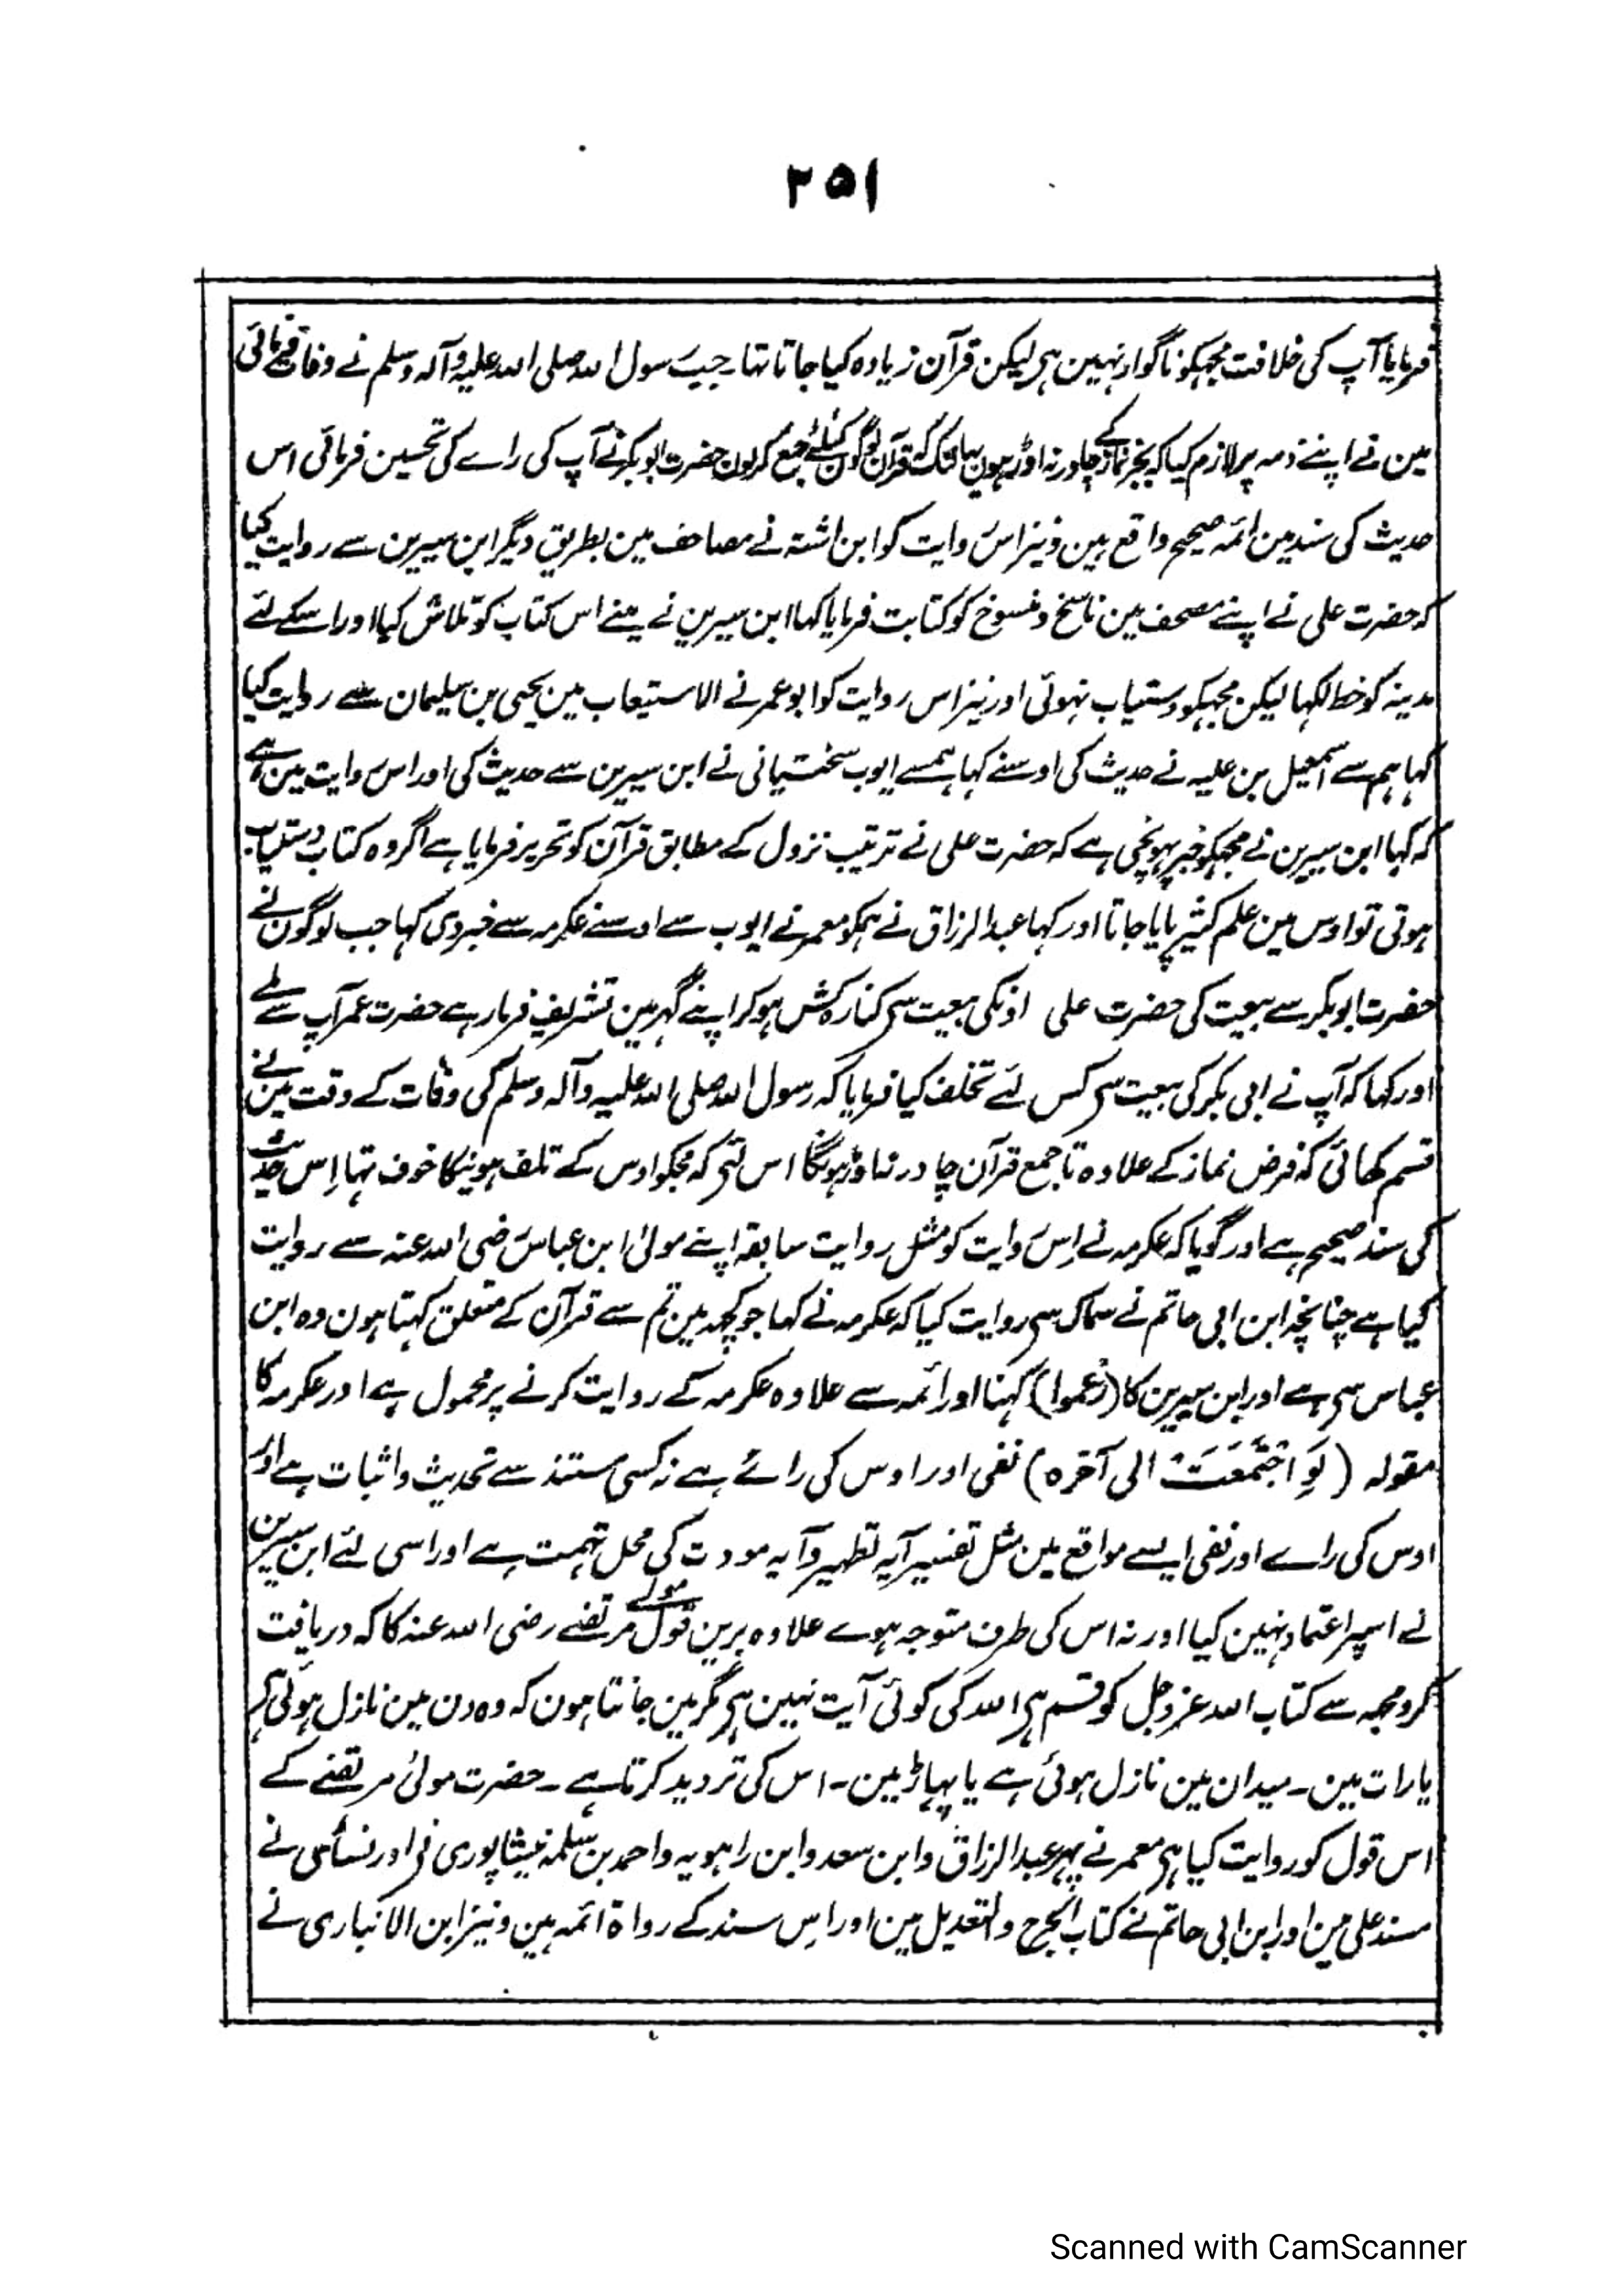 ۲۵۱
فرمایا آپ کی خلافت مجہکو ناگوار نہین ہی لیکن قرآن زیادہ کیا جاتا تہا جب رسول اللہ صلی اللہ علیہ وآلہ وسلم نے وفات فرمائی
مین نے اپنے ذمہ پر لازم کیا کہ بجز نماز کے چادر نہ اوڑہون یہانتک کہ قرآن لوگون کیلئے جمع کرلون حضرت ابوبکر نے آپ کی راے کی تحسین فرمائی اس
حدیث کی سند مین ائمہ صحیح واقع ہین ونیز اس روایت کو ابن اشتہ نے مصاحف مین بطریق دیگر ابن سیرین سے روایت کیا
کہ حضرت علی نے اپنے مصحف مین ناسخ ومنسوخ کو کتابت فرمایا کہا ابن سیرین نے مینے اس کتاب کو تلاش کیا اور اسکے لئے
مدینہ کو خط لکہا لیکن مجہکو دستیاب نہوئی اور نیز اس روایت کو ابو عمر نے الاستیعاب مین یحیی بن سلیمان سے روایت کیا
کہا ہم سے اسمعیل بن علیہ نے حدیث کی اوسنے کہا ہمسے ایوب سختیانی نے ابن سیرین سے حدیث کی اور اس روایت مین ہے
کہ کہا ابن سیرین نے مجہکو خبر پہونچی ہے کہ حضرت علی نے ترتیب نزول کے مطابق قرآن کو تحریر فرمایا ہے اگر وہ کتاب دستیاب
ہوتی تو اوس مین علم کثیر پایا جاتا اور کہا عبدالرزاق نے ہمکو معمر نے ایوب سے اوسنے عکرمہ سے خبر دی کہا جب لوگون نے
حضرت ابوبکر سے بیعت کی حضرت علی اونکی بیعت سی کنارہ کش ہوکر اپنے گہر مین تشریف فرما رہے حضرت عمر آپ سے ملے
اور کہا کہ آپ نے ابی بکر کی بیعت سی کس لئے تخلف کیا فرمایا کہ رسول اللہ صلی اللہ علیہ وآلہ وسلم کی وفات کے وقت مین نے
قسم کھائی کہ فرض نماز کے علاوہ تا جمع قرآن چادر نہ اوڑہونگا اس لئی کہ مجکو اوس کے تلف ہونیکا خوف تہا اِس حدیث
کی سند صحیح ہے اور گویا کہ عکرمہ نے اِس روایت کو مثل روایت سابقہ اپنے مولیٰ ابن عباس رضی اللہ عنہ سے روایت
کیا ہے چنانچہ ابن ابی حاتم نے سماک سی روایت کیا کہ عکرمہ نے کہا جو کچہہ مین تم سے قرآن کے متعلق کہتا ہون وہ ابن
عباس سی ہے اور ابن سیرین کا (زعموا) کہنا اور ائمہ سے علاوہ عکرمہ کے روایت کرنے پر محمول ہے اور عکرمہ کا
مقولہ (لَوِ اجْتَمَعَتْ الی آخرہ) نفی اور اوس کی رائے ہے نہ کسی مستند سے تحدیث واثبات ہے اور
اوس کی راے اور نفی ایسے مواقع مین مثل تفسیر آیہ تطہیر وآیہ مودت کی محل تہمت ہے اور اسی لئے ابن سیرین
نے اسپر اعتماد نہین کیا اور نہ اس کی طرف متوجہ ہوے علاوہ برین قول مولے مرتضے رضی اللہ عنہ کا کہ دریافت
کرو مجہہ سے کتاب اللہ عز وجل کو قسم ہی اللہ کی کوئی آیت نہین ہی مگر مین جانتا ہون کہ وہ دن مین نازل ہوئی ہی
یا رات مین ۔ میدان مین نازل ہوئی ہے یا پہاڑ مین ۔ اس کی تردید کرتا ہے ۔ حضرت مولیٰ مرتضے کے
اس قول کو روایت کیا ہی معمر نے پہر عبدالرزاق وابن سعد وابن راہویہ واحمد بن سلمہ نیشاپوری نی اور نسائی نے
مسند علی مین اور ابن ابی حاتم نے کتاب الجرح والتعدیل مین اور اس سند کے رواۃ ائمہ ہین ونیز ابن الانباری نے
Scanned with CamScanner